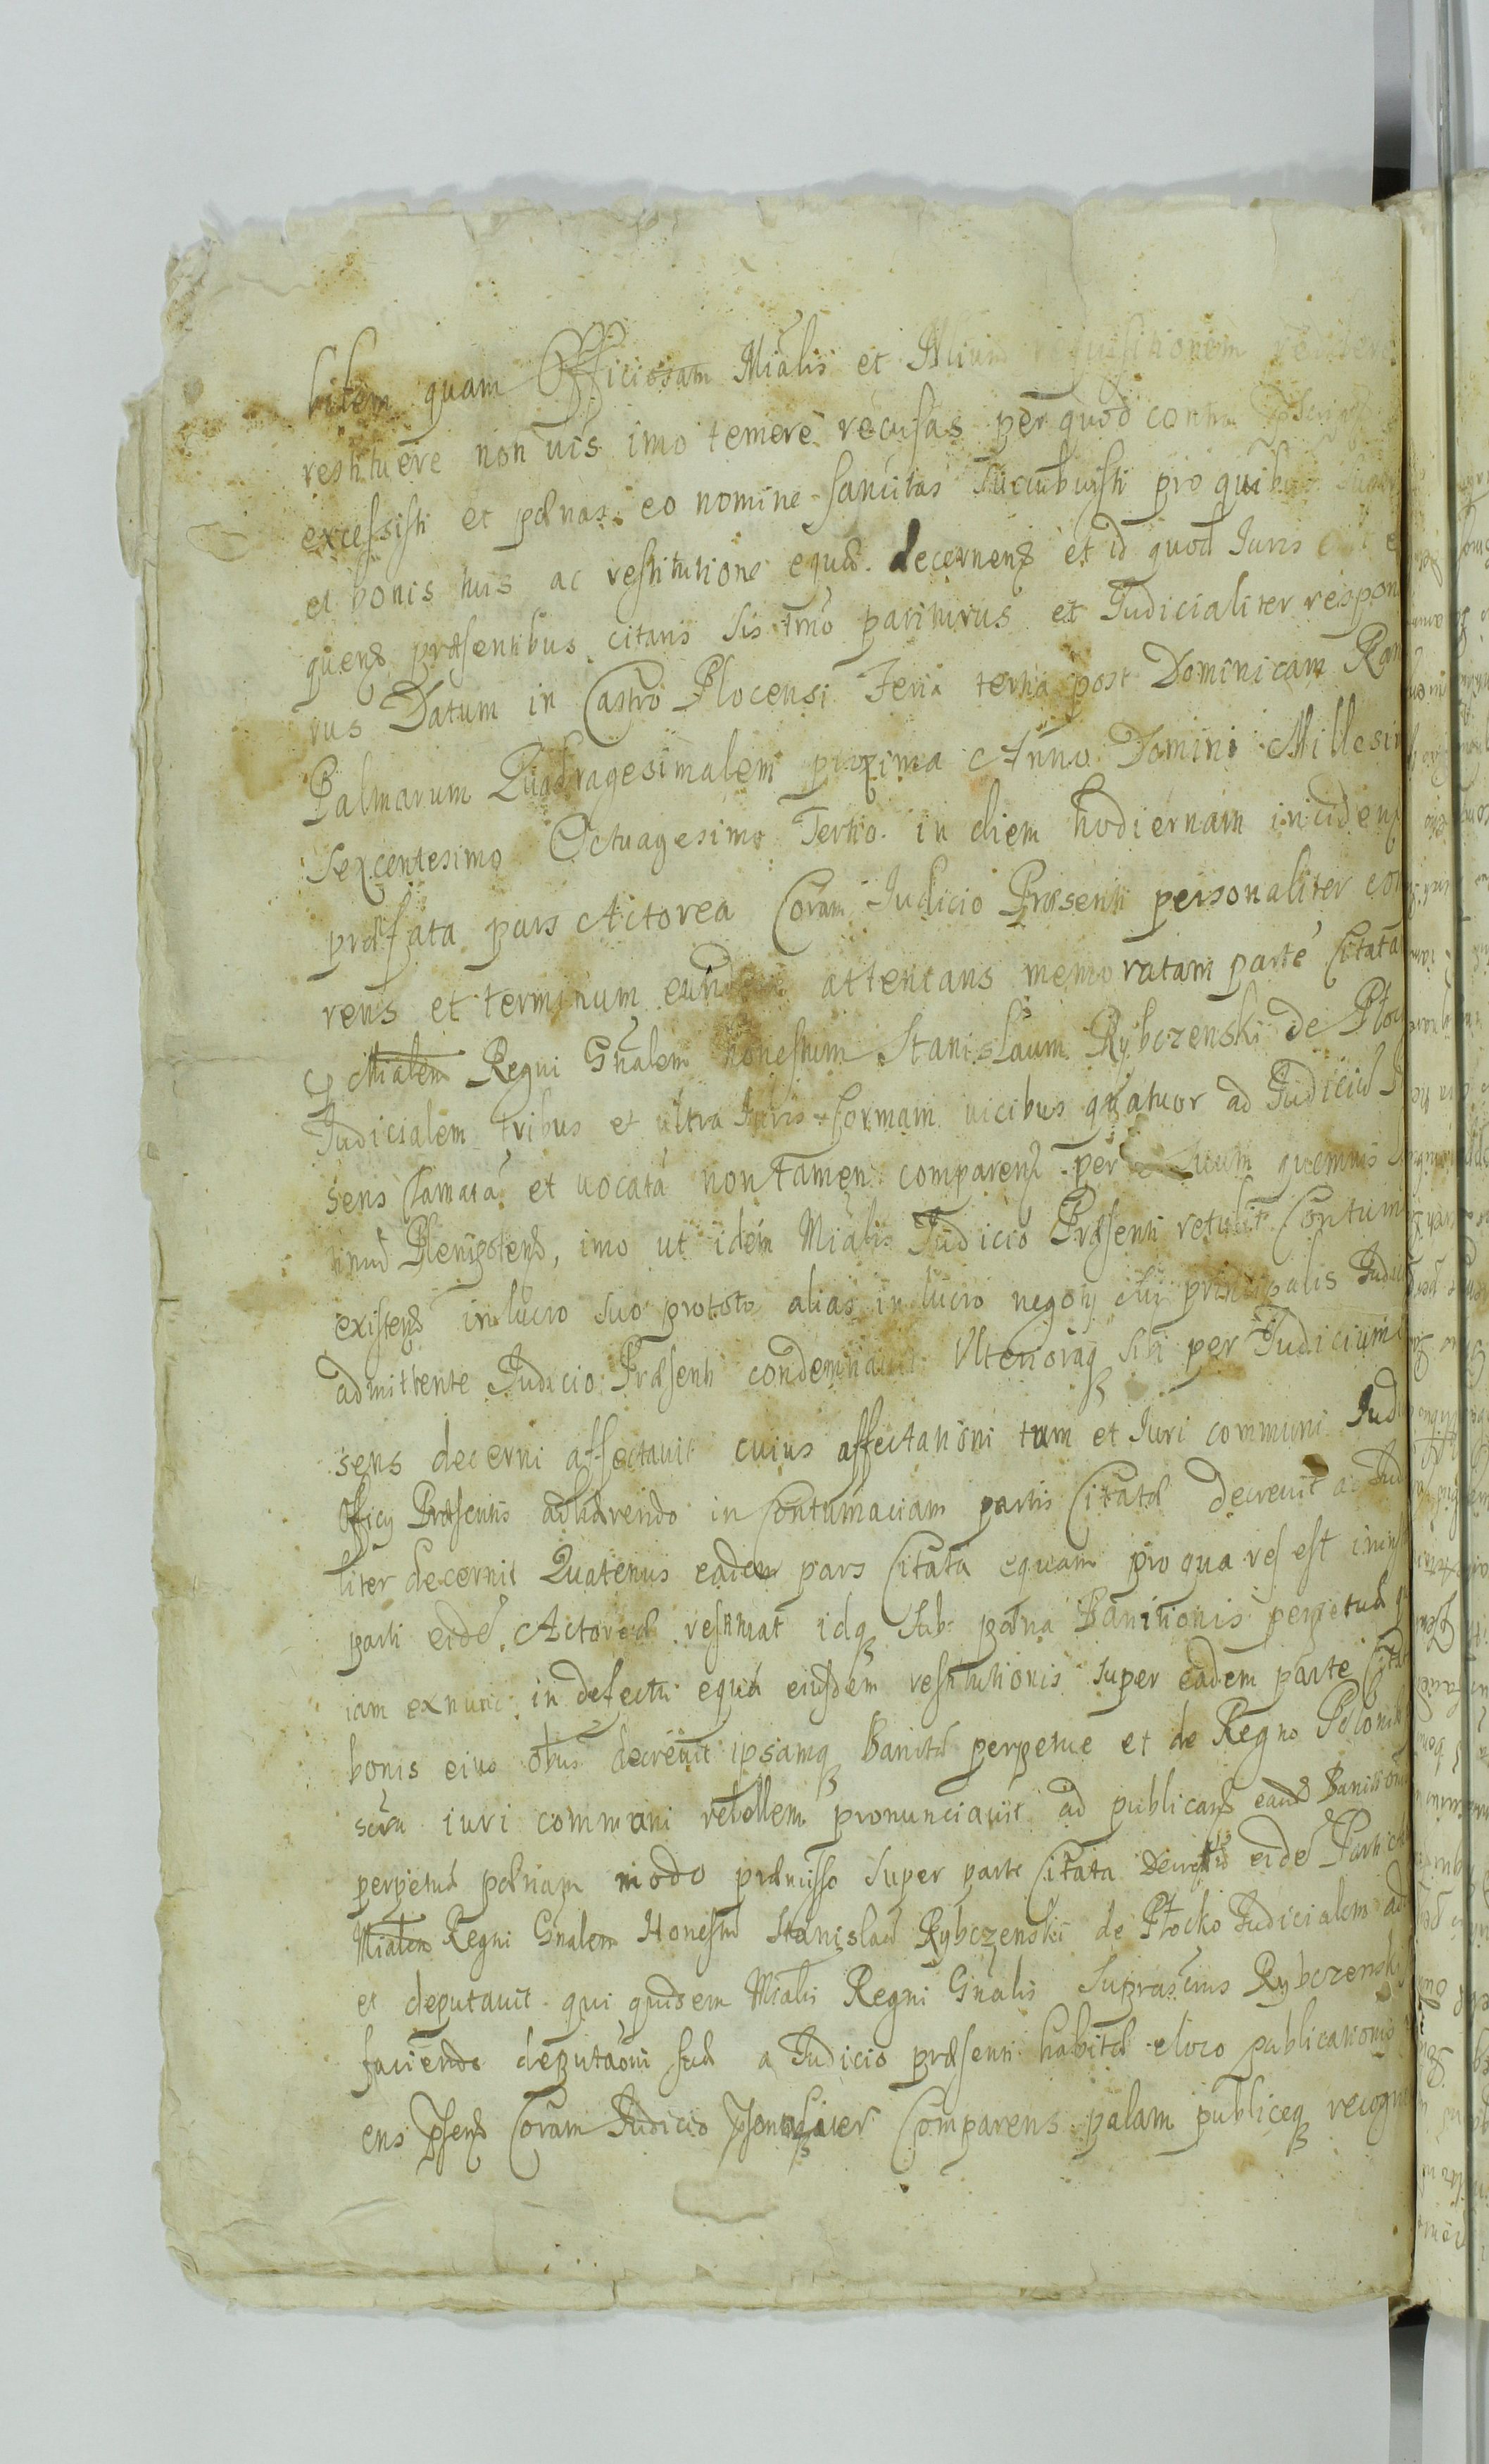 bitem quam Officiosam Mialis et Alium requisitionem
restituere non uis imo temere recusas per quod contra
excessisti et pœnas eo nomine sancitas succubuisti pro quibus
et bonis tuis ac restitutione equa. decernenď et id quod Iuris
quenď præsentibus citaris sis tmo pariturus et Iudicialiter respon
rus Datum in Castro Plocensi Feria tertia post Dominicam Ram
Palmarum Quadragesimalem proxima Anno Domini Millesim
Sexcentesimo Octuagesimo Tertio. in diem hodiernam incidenť
præfata pars Actorea Coram Iudicio Præsenti personaliter com
rens et terminum eundem attentans memoratam parte Citata
Mialem Regni Gnalem honestum Stanislaum Rybczenski de Ploc
Iudicialem tribus et ultra Iuris formam uicibus quatuor ad Iudiciũ
sens Clamatã et uocatã non tamen comparenť per suum quemuis
Plenipotenď, imo ut idem Mialis Iudicio Præsenti retulit Contum
existenď in lucro suo alias in lucro negoty sui principalis Iudici
admittente Iudicio Præsenti condemnauit Vlterioraq sibi per Iudicium
sens decerni affectauit cuius affectationi tum et Iuri communi Iud
Officy Præsentis adhærendo in Contumaciam partis Citatæ decreuit ac Iud
liter decernit Quatenus eadem pars Citata equam pro qua res est
parti eidẽ Actoreæ restituat idq sub pœna Banitionis perpetuæ
iam exnunc in defectu equa eiusdem restitutionis super eadem parte Citat
bonis eius obus decreuit ipsamq Banitã perpetue et de Regno Poloniæ
iuri communi rebellem pronunciauit ad publicanď eandẽ Banitiõ
perpetuæ pœnam modo præmisso super parte Citata eidẽ Parti
Mialem Regni Gnalem Honestũ Stanislaũ Rybczenski de Płocko Iudicialem ad
et deputauit qui quidem Mialis Regni Gnalis Suprascrius Rybczenski
faciendo deputaõni suæ a Iudicio præsenti habitæ eloco publicationis
ens Coram Iudicio Comparens palam publiceq recogn